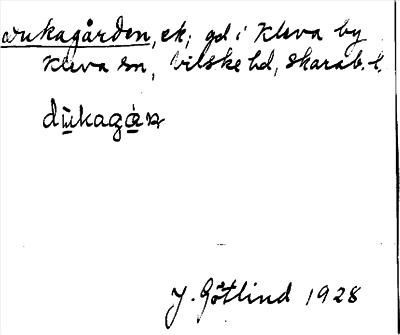 Dukagården, ek, gd i Kleva by
Kleva sn, Vilske hd, Skarab. l.
dùkagán
J. Götlind 1928